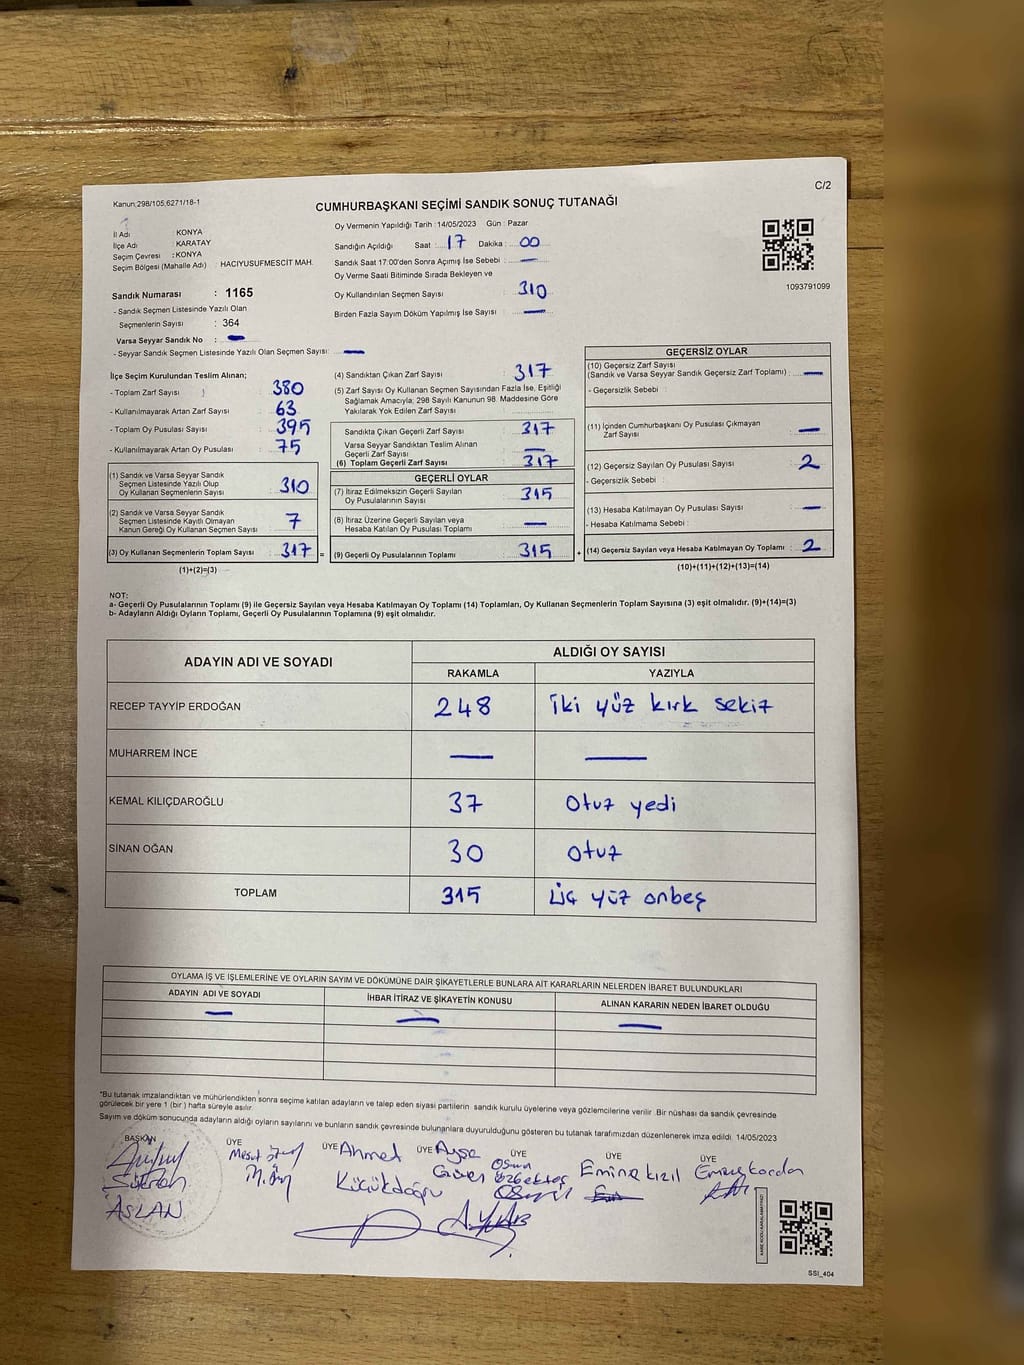 Kanun;298/105,6271/18-1
C/2
CUMHURBAŞKANI SEÇİMİ SANDIK SONUÇ TUTANAĞI
İl Adı : KONYA
İlçe Adı : KARATAY
Seçim Çevresi : KONYA
Seçim Bölgesi (Mahalle Adı) : HACIYUSUFMESCİT MAH.
Sandık Numarası : 1165
- Sandık Seçmen Listesinde Yazılı Olan
Seçmenlerin Sayısı : 364
Varsa Seyyar Sandık No : —
- Seyyar Sandık Seçmen Listesinde Yazılı Olan Seçmen Sayısı: —
Oy Vermenin Yapıldığı Tarih : 14/05/2023 Gün : Pazar
Sandığın Açıldığı Saat : 17 Dakika : 00
Sandık Saat 17:00'den Sonra Açımış İse Sebebi : —
Oy Verme Saati Bitiminde Sırada Bekleyen ve
Oy Kullandırılan Seçmen Sayısı : 310
Birden Fazla Sayım Döküm Yapılmış İse Sayısı : —
1093791099
İlçe Seçim Kurulundan Teslim Alınan;
- Toplam Zarf Sayısı ) : 380
- Kullanılmayarak Artan Zarf Sayısı : 63
- Toplam Oy Pusulası Sayısı : 395
- Kullanılmayarak Artan Oy Pusulası : 75
(1) Sandık ve Varsa Seyyar Sandık
Seçmen Listesinde Yazılı Olup
Oy Kullanan Seçmenlerin Sayısı : 310
(2) Sandık ve Varsa Seyyar Sandık
Seçmen Listesinde Kayıtlı Olmayan
Kanun Gereği Oy Kullanan Seçmen Sayısı : 7
(3) Oy Kullanan Seçmenlerin Toplam Sayısı : 317 =
(1)+(2)=(3)
(4) Sandıktan Çıkan Zarf Sayısı : 317
(5) Zarf Sayısı Oy Kullanan Seçmen Sayısından Fazla İse, Eşitliği
Sağlamak Amacıyla; 298 Sayılı Kanunun 98. Maddesine Göre
Yakılarak Yok Edilen Zarf Sayısı :
Sandıkta Çıkan Geçerli Zarf Sayısı : 317
Varsa Seyyar Sandıktan Teslim Alınan
Geçerli Zarf Sayısı : —
(6) Toplam Geçerli Zarf Sayısı : 317
GEÇERLİ OYLAR
(7) İtiraz Edilmeksizin Geçerli Sayılan
Oy Pusulalarının Sayısı : 315
(8) İtiraz Üzerine Geçerli Sayılan veya
Hesaba Katılan Oy Pusulası Toplamı : —
(9) Geçerli Oy Pusulalarının Toplamı : 315 +
GEÇERSİZ OYLAR
(10) Geçersiz Zarf Sayısı
(Sandık ve Varsa Seyyar Sandık Geçersiz Zarf Toplamı) : —
- Geçersizlik Sebebi :
(11) İçinden Cumhurbaşkanı Oy Pusulası Çıkmayan
Zarf Sayısı : —
(12) Geçersiz Sayılan Oy Pusulası Sayısı : 2
- Geçersizlik Sebebi :
(13) Hesaba Katılmayan Oy Pusulası Sayısı : —
- Hesaba Katılmama Sebebi :
(14) Geçersiz Sayılan veya Hesaba Katılmayan Oy Toplamı : 2
(10)+(11)+(12)+(13)=(14)
NOT:
a- Geçerli Oy Pusulalarının Toplamı (9) ile Geçersiz Sayılan veya Hesaba Katılmayan Oy Toplamı (14) Toplamları, Oy Kullanan Seçmenlerin Toplam Sayısına (3) eşit olmalıdır. (9)+(14)=(3)
b- Adayların Aldığı Oyların Toplamı, Geçerli Oy Pusulalarının Toplamına (9) eşit olmalıdır.
ADAYIN ADI VE SOYADI ALDIĞI OY SAYISI
RAKAMLA YAZIYLA
RECEP TAYYİP ERDOĞAN 248 iki yüz kırk sekiz
MUHARREM İNCE — —
KEMAL KILIÇDAROĞLU 37 Otuz yedi
SİNAN OĞAN 30 Otuz
TOPLAM 315 Üç yüz onbeş
OYLAMA İŞ VE İŞLEMLERİNE VE OYLARIN SAYIM VE DÖKÜMÜNE DAİR ŞİKAYETLERLE BUNLARA AİT KARARLARIN NELERDEN İBARET BULUNDUKLARI
ADAYIN ADI VE SOYADI İHBAR İTİRAZ VE ŞİKAYETİN KONUSU ALINAN KARARIN NEDEN İBARET OLDUĞU
— — —
"Bu tutanak imzalandıktan ve mühürlendikten sonra seçime katılan adayların ve talep eden siyasi partilerin sandık kurulu üyelerine veya gözlemcilerine verilir. Bir nüshası da sandık çevresinde
görülecek bir yere 1 (bir) hafta süreyle asılır.
Sayım ve döküm sonucunda adayların aldığı oyların sayılarını ve bunların sandık çevresinde bulunanlara duyurulduğunu gösteren bu tutanak tarafımızdan düzenlenerek imza edildi. 14/05/2023
BAŞKAN ÜYE ÜYE ÜYE ÜYE ÜYE ÜYE
ASLAN
Mesut
Ahmet
Küçükdoğru
Ayşe
Emine Kızıl
SSİ_404